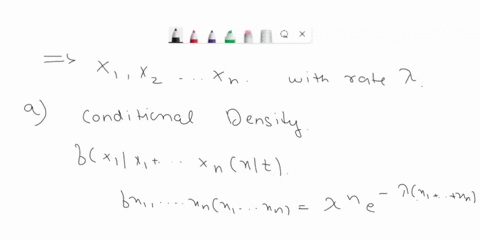 => x1, x2 ... xn. with rate λ.
a) Conditional Density.
f(x1 | x1 + ... xn (x|t).
fx1, ... xn (x1 ... xn) = λ^n e^-λ(x1 + ... + xn)